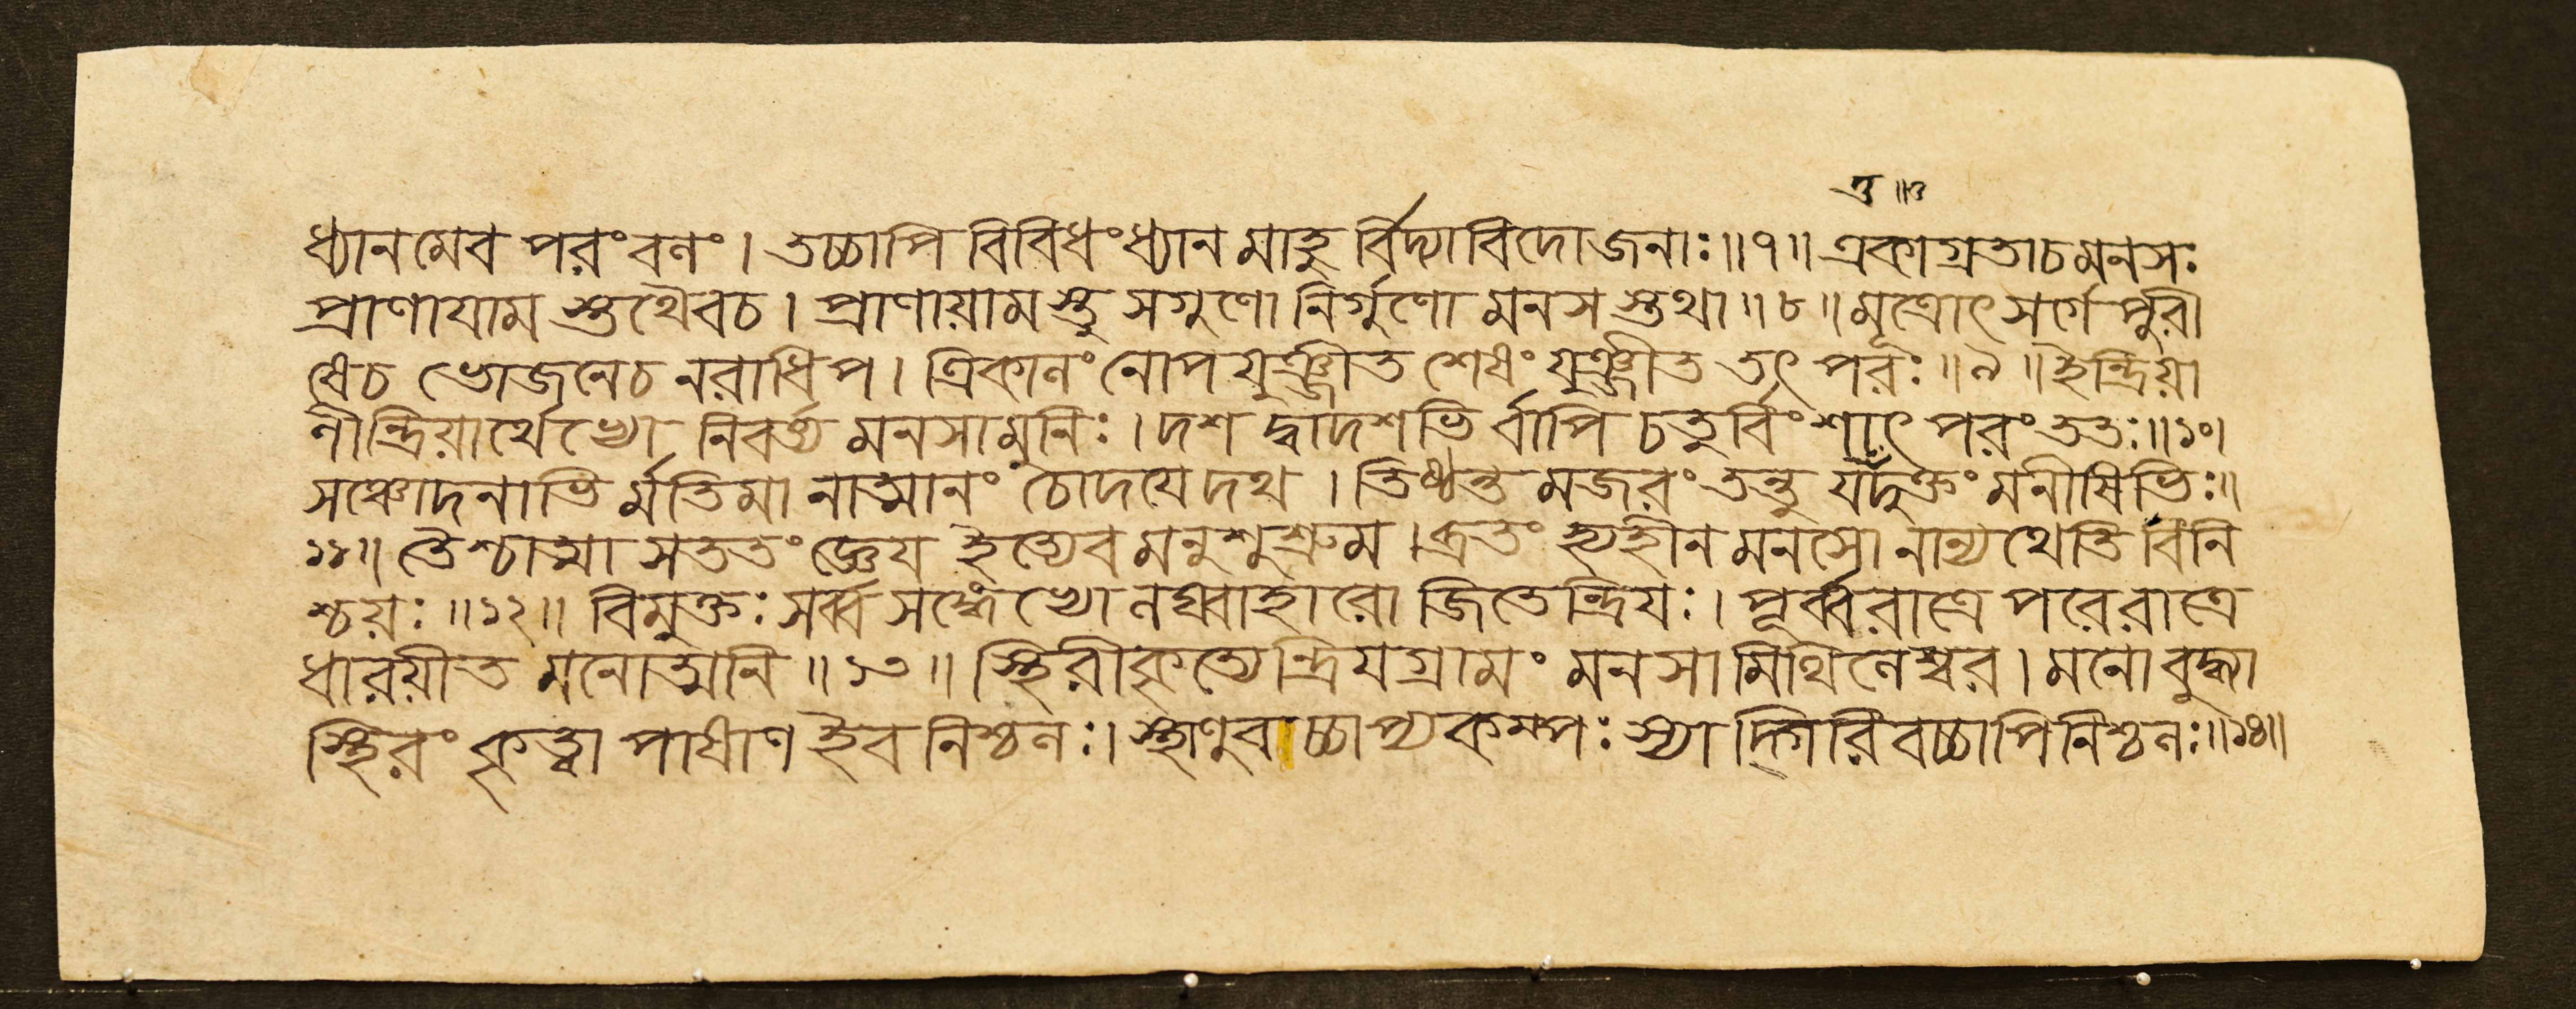 তু ॥৩
ধ্যানমেব পরং বলং। তচ্চাপি বিবিধং ধ্যান মাহু র্বিদ্যাবিদোজনাঃ॥৭॥ একাগ্রতাচমনসঃ
প্রাণাযাম স্তুথৈবচ। প্রাণায়াম স্তু সগুণো নির্গুণো মনস স্তথা॥৮॥ মূত্রোৎসর্গে পুরী
ষেচ ভোজনেচ নরাধিপ। ত্রিকালং নোপযুঞ্জীত শেষং যুঞ্জীত তৎ পরঃ॥৯॥ ইন্দ্রিয়া
ণীন্দ্রিয়ার্থেভ্যো নিবর্ত্য মনসামুনিঃ। দশ দ্বাদশভি র্বাপি চতুর্বিংশাৎ পরং ততঃ॥১০।
সঞ্চোদনাভি র্মতিমা নাত্মানং চোদযেদথ। তিষ্ঠন্ত মজরং তন্তু যদুক্তং মনীষিভিঃ॥
১১॥ তৈশ্চাত্মা সততং জ্ঞেয ইত্যেব মনুশুশ্রুম। ব্রতং হ্যহীন মনসো নান্যথেতি বিনি
শ্চয়ঃ॥১২॥ বিমুক্তঃ সর্ব্ব সঙ্গেভ্যো লঘ্বাহারো জিতেন্দ্রিযঃ। পূর্ব্বরাত্রে পরেরাত্রে
ধারয়ীত মনোত্মনি॥১৩॥ স্থিরীকৃত্যেন্দ্রিযগ্রামং মনসা মিথিলেশ্বর। মনো বুদ্ধ্যা
স্থিরং কৃত্বা পাষাণ ইব নিশ্চলঃ। স্থাণুবচ্চাপ্যকম্পঃ স্যা দ্গিরিবচ্চাপিনিশ্চলঃ॥১৪॥